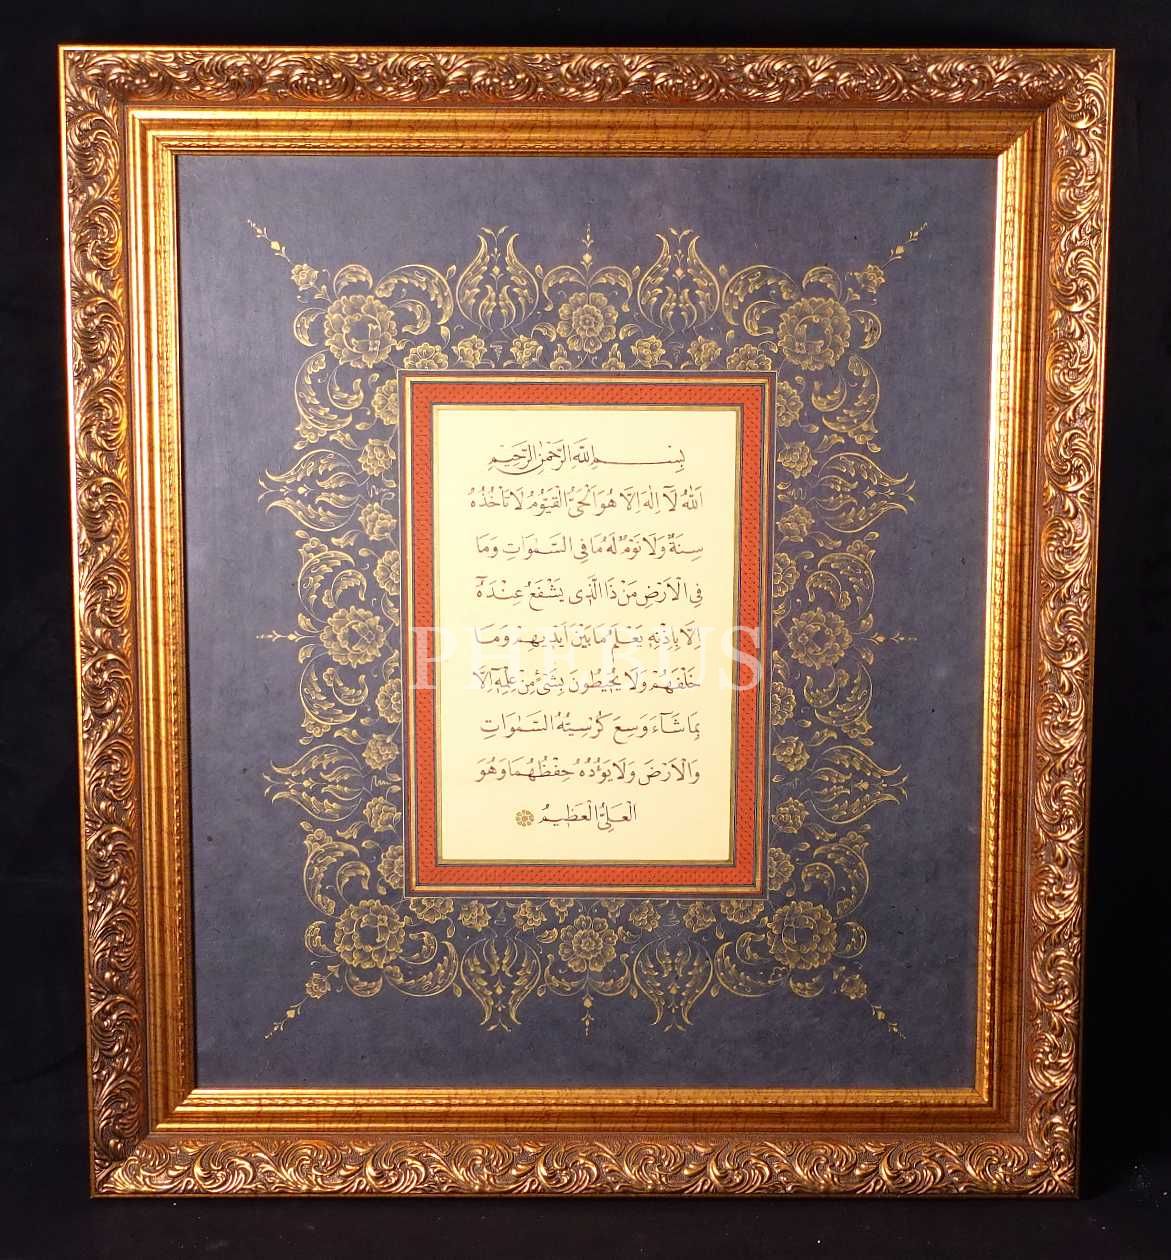 بِسْمِ اللّٰهِ الرَّحْمٰنِ الرَّحِيمِ
اَللّٰهُ لَٓا اِلٰهَ اِلَّا هُوَ اَلْحَىُّ الْقَيُّومُ لَا تَأْخُذُهُ
سِنَةٌ وَلَا نَوْمٌ لَهُ مَا فِى السَّمٰوَاتِ وَمَا
فِى الْاَرْضِ مَنْ ذَا الَّذِى يَشْفَعُ عِنْدَهُٓ
اِلَّا بِاِذْنِهِ يَعْلَمُ مَا بَيْنَ اَيْدِيهِمْ وَمَا
خَلْفَهُمْ وَلَا يُحِيطُونَ بِشَىْءٍ مِنْ عِلْمِهِٓ اِلَّا
بِمَا شَٓاءَ وَسِعَ كُرْسِيُّهُ السَّمٰوَاتِ
وَالْاَرْضَ وَلَا يَؤُدُهُ حِفْظُهُمَا وَهُوَ
الْعَلِىُّ الْعَظِيمُ
PHEBUS